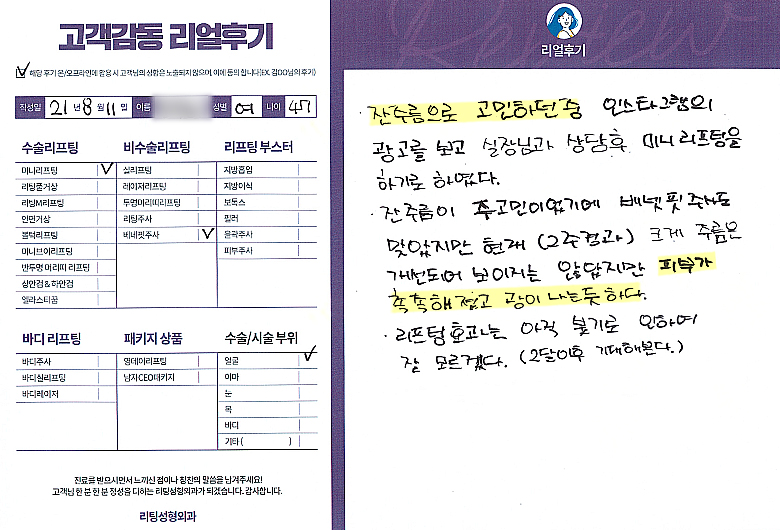 고객감동 리얼후기
해당 후기 온/오프라인에 활용 시 고객님의 성함은 노출되지 않으며, 이에 동의 합니다(EX. 김OO님의 후기)
작성일 21년 8월 11일 이름 성별 여 나이 47
수술리프팅
미니리프팅
리팅풍거상
리팅M리프팅
안면거상
블랙리프팅
미니브이리프팅
반투명 미리띠 리프팅
상안검 & 하안검
엘라스티꿈
비수술리프팅
실리프팅
레이저리프팅
투명미리띠리프팅
리팅주사
베네핏주사
리프팅 부스터
지방흡입
지방이식
보톡스
필러
윤곽주사
피부주사
바디 리프팅
바디주사
바디실리프팅
바디레이저
패키지 상품
원데이리프팅
남자CEO패키지
수술/시술 부위
얼굴
이마
눈
목
바디
기타 ( )
진료를 받으시면서 느끼신 점이나 칭찬의 말씀을 남겨주세요!
고객님 한 분 한 분 정성을 다하는 리팅성형외과가 되겠습니다. 감사합니다.
리팅성형외과
Review
리얼후기
· 잔주름으로 고민하던 중 인스타그램의
광고를 보고 실장님과 상담후 미니리프팅을
하기로 하였다.
· 잔주름이 주고민이었기에 베넷핏 주사도
맞았지만 현재 (2주경과) 크게 주름은
개선되어 보이지는 않았지만 피부가
촉촉해졌고 광이 나는듯하다.
· 리프팅효과는 아직 붓기로 인하여
잘 모르겠다. (2달이후 기대해본다.)